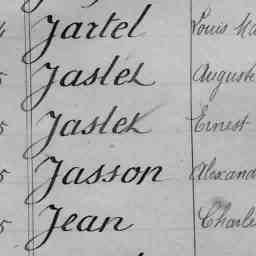 Jartel Louis
5 Jaslet Auguste
5 Jaslet Ernest
5 Jasson Alexand
5 Jean Charle